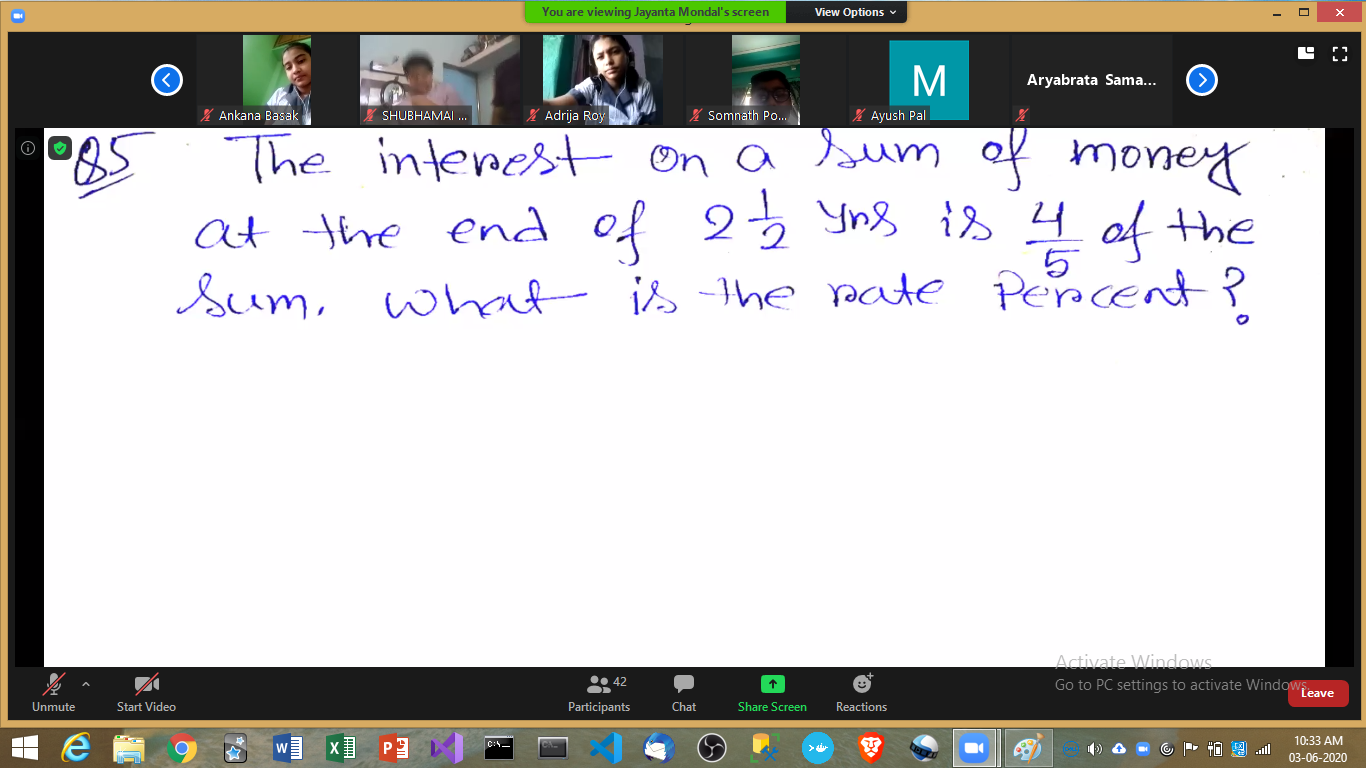 You are viewing Jayanta Mondal's screen View Options
Ankana Basak SHUBHAMAI ... Adrija Roy Somnath Po... Ayush Pal Aryabrata Sama...
M
Q5 The interest on a sum of money
at the end of 2 1/2 yrs is 4/5 of the
sum. What is the rate Percent?
Activate Windows
Go to PC settings to activate Windows.
Unmute Start Video Participants 42 Chat Share Screen Reactions Leave
10:33 AM
03-06-2020